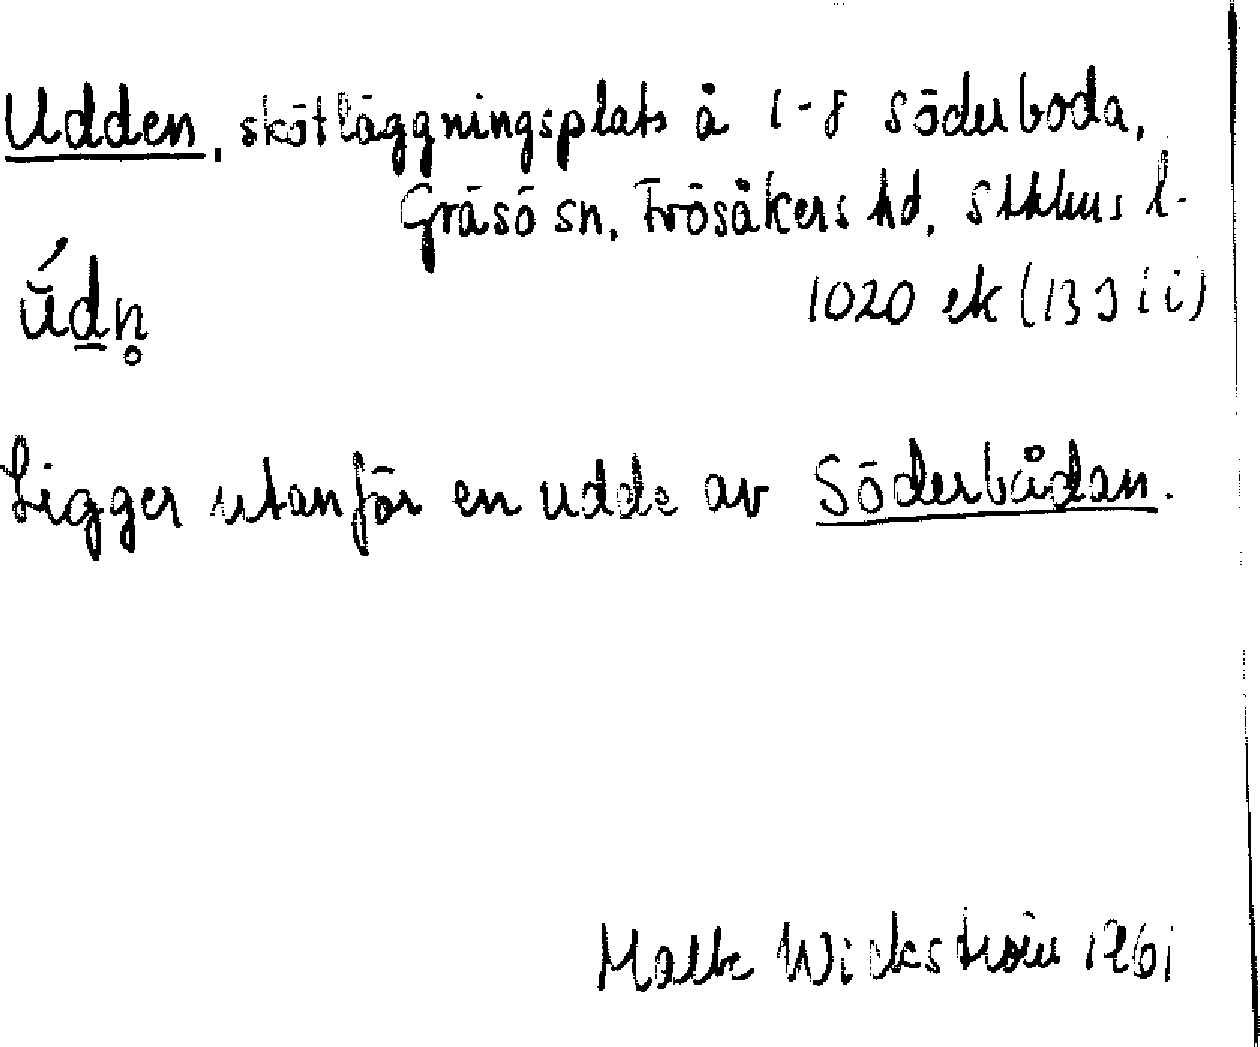 Udden, skötläggningsplats å 1-8 Söderboda,
Gräsö sn, Frösåkers hd, Sthlms l.
údn̥
1020 ek (13 I 1 i)
Ligger utanför en udde av Söderbådan.
Malte Wickström 1961